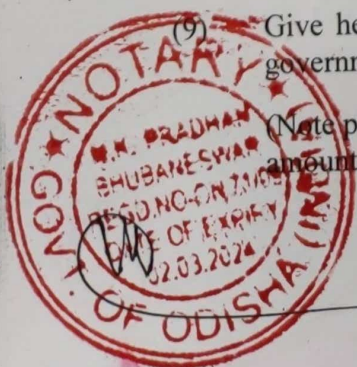 (9) Give he
governm
(Note p
amount
NOTARY
GOVT. OF ODISHA (INDIA)
PRADHAN
BHUBANESWAR
REGD.NO-ON
DATE OF EXPIRY
02.03.2024